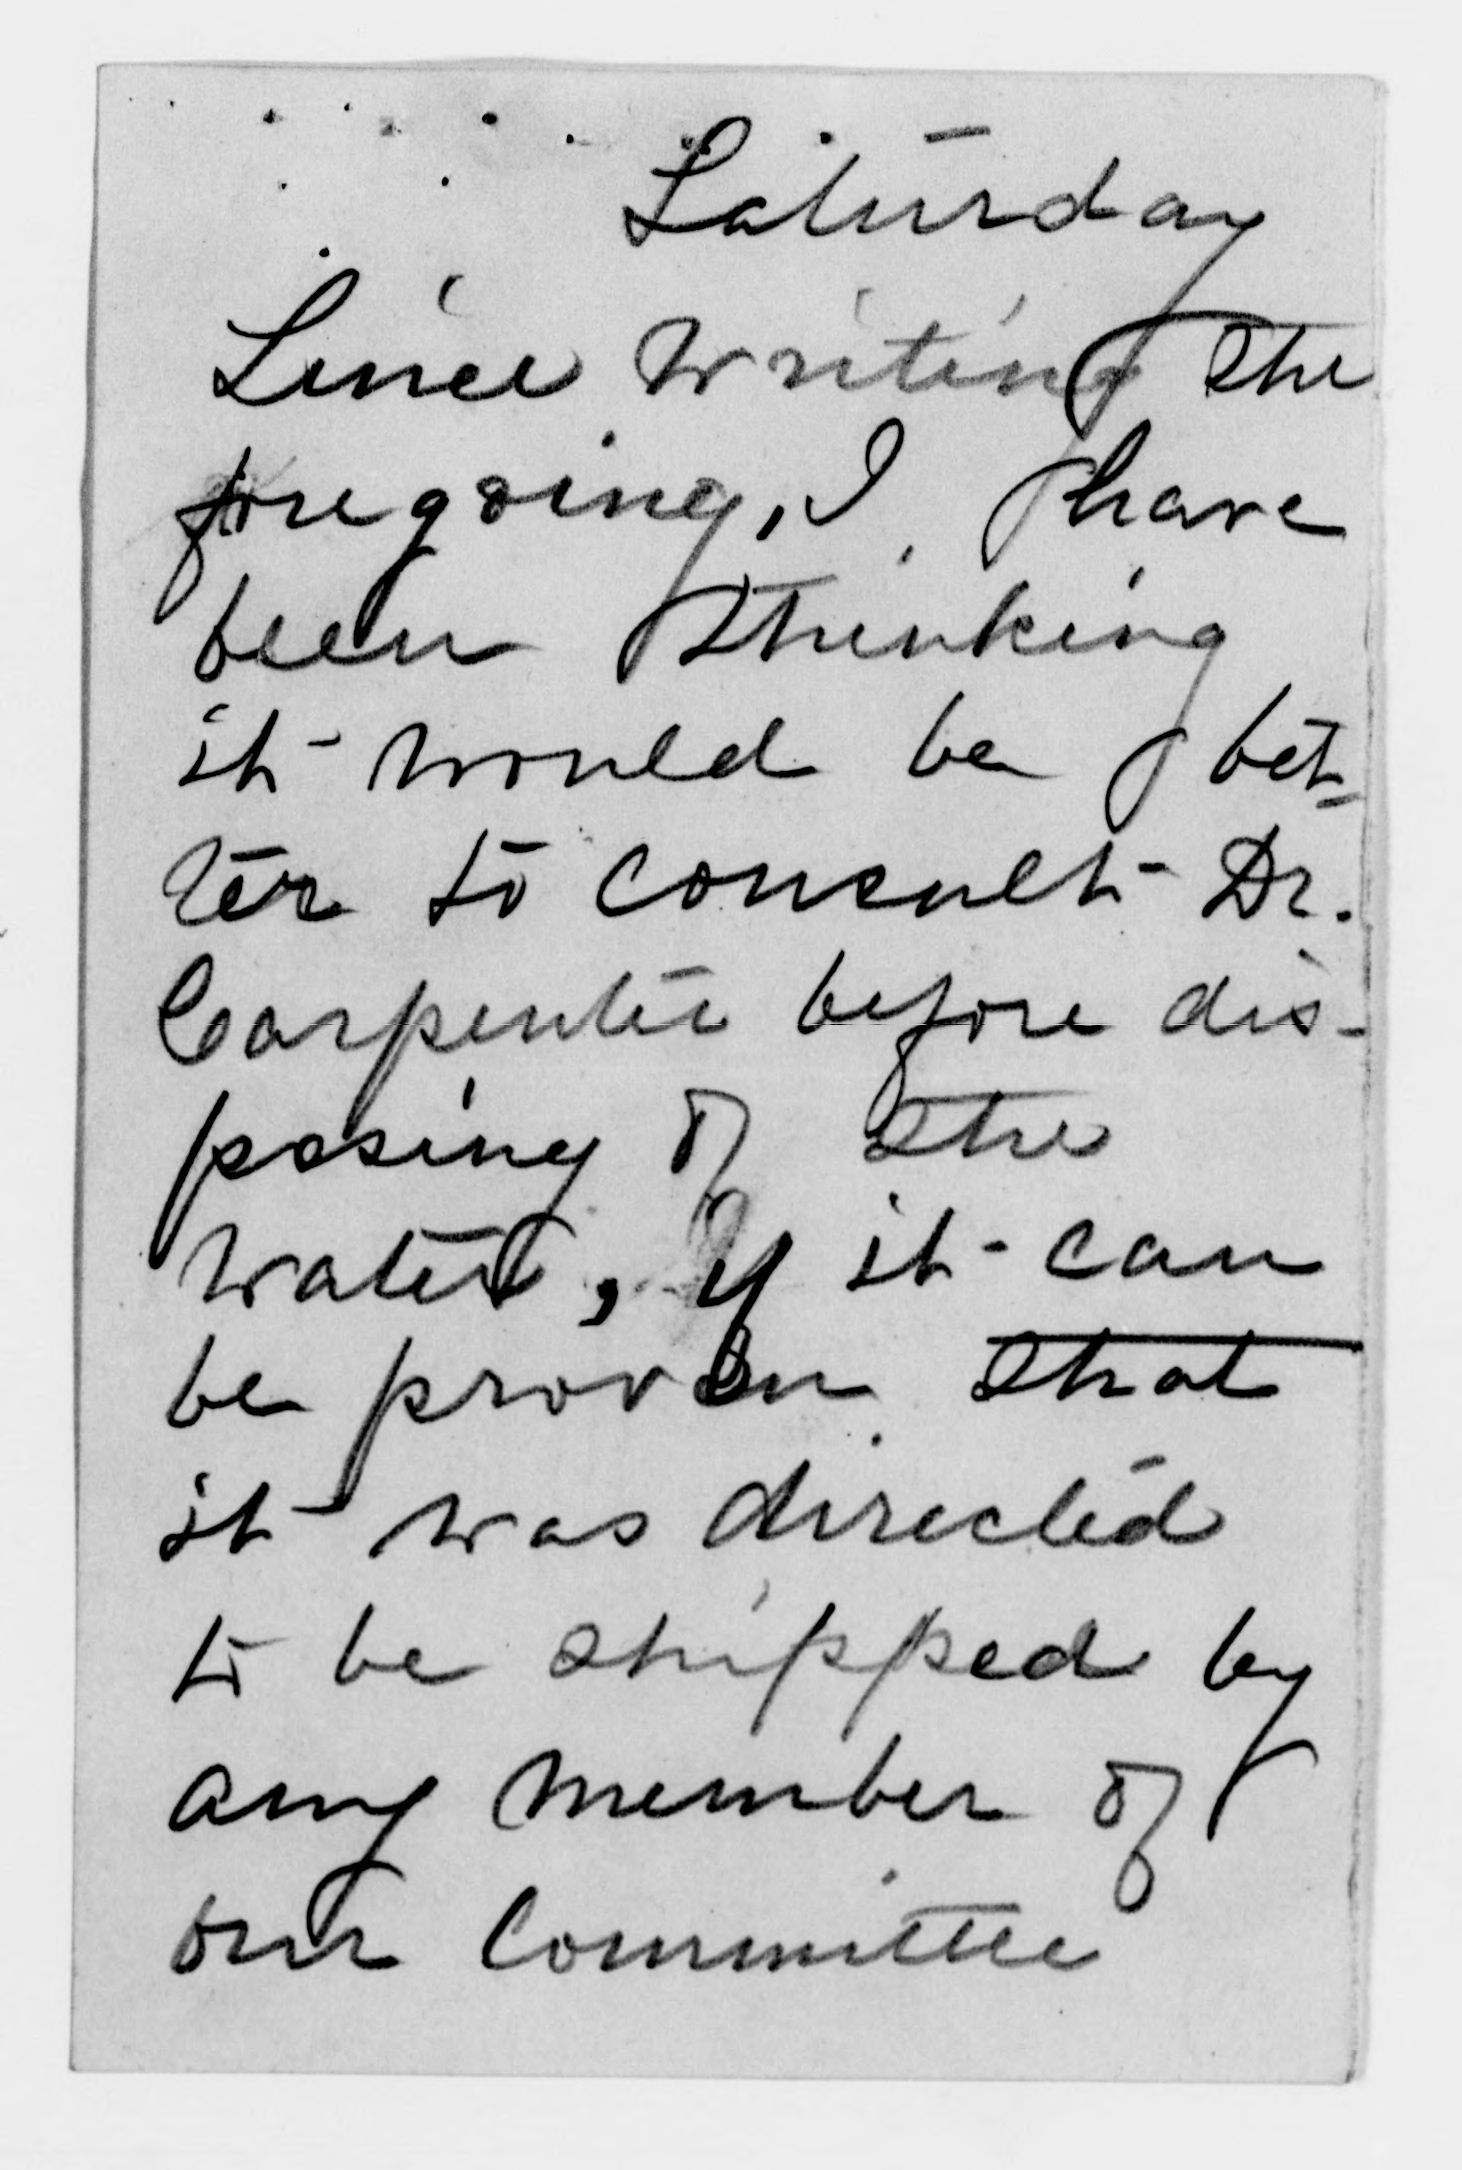 Saturday
Since writing the
foregoing, I have
been thinking
it would be bet-
ter to consult Dr.
Carpenter before dis-
posing of the
water, if it can
be proven that
it was directed
to be shipped by
any member of
our Committee